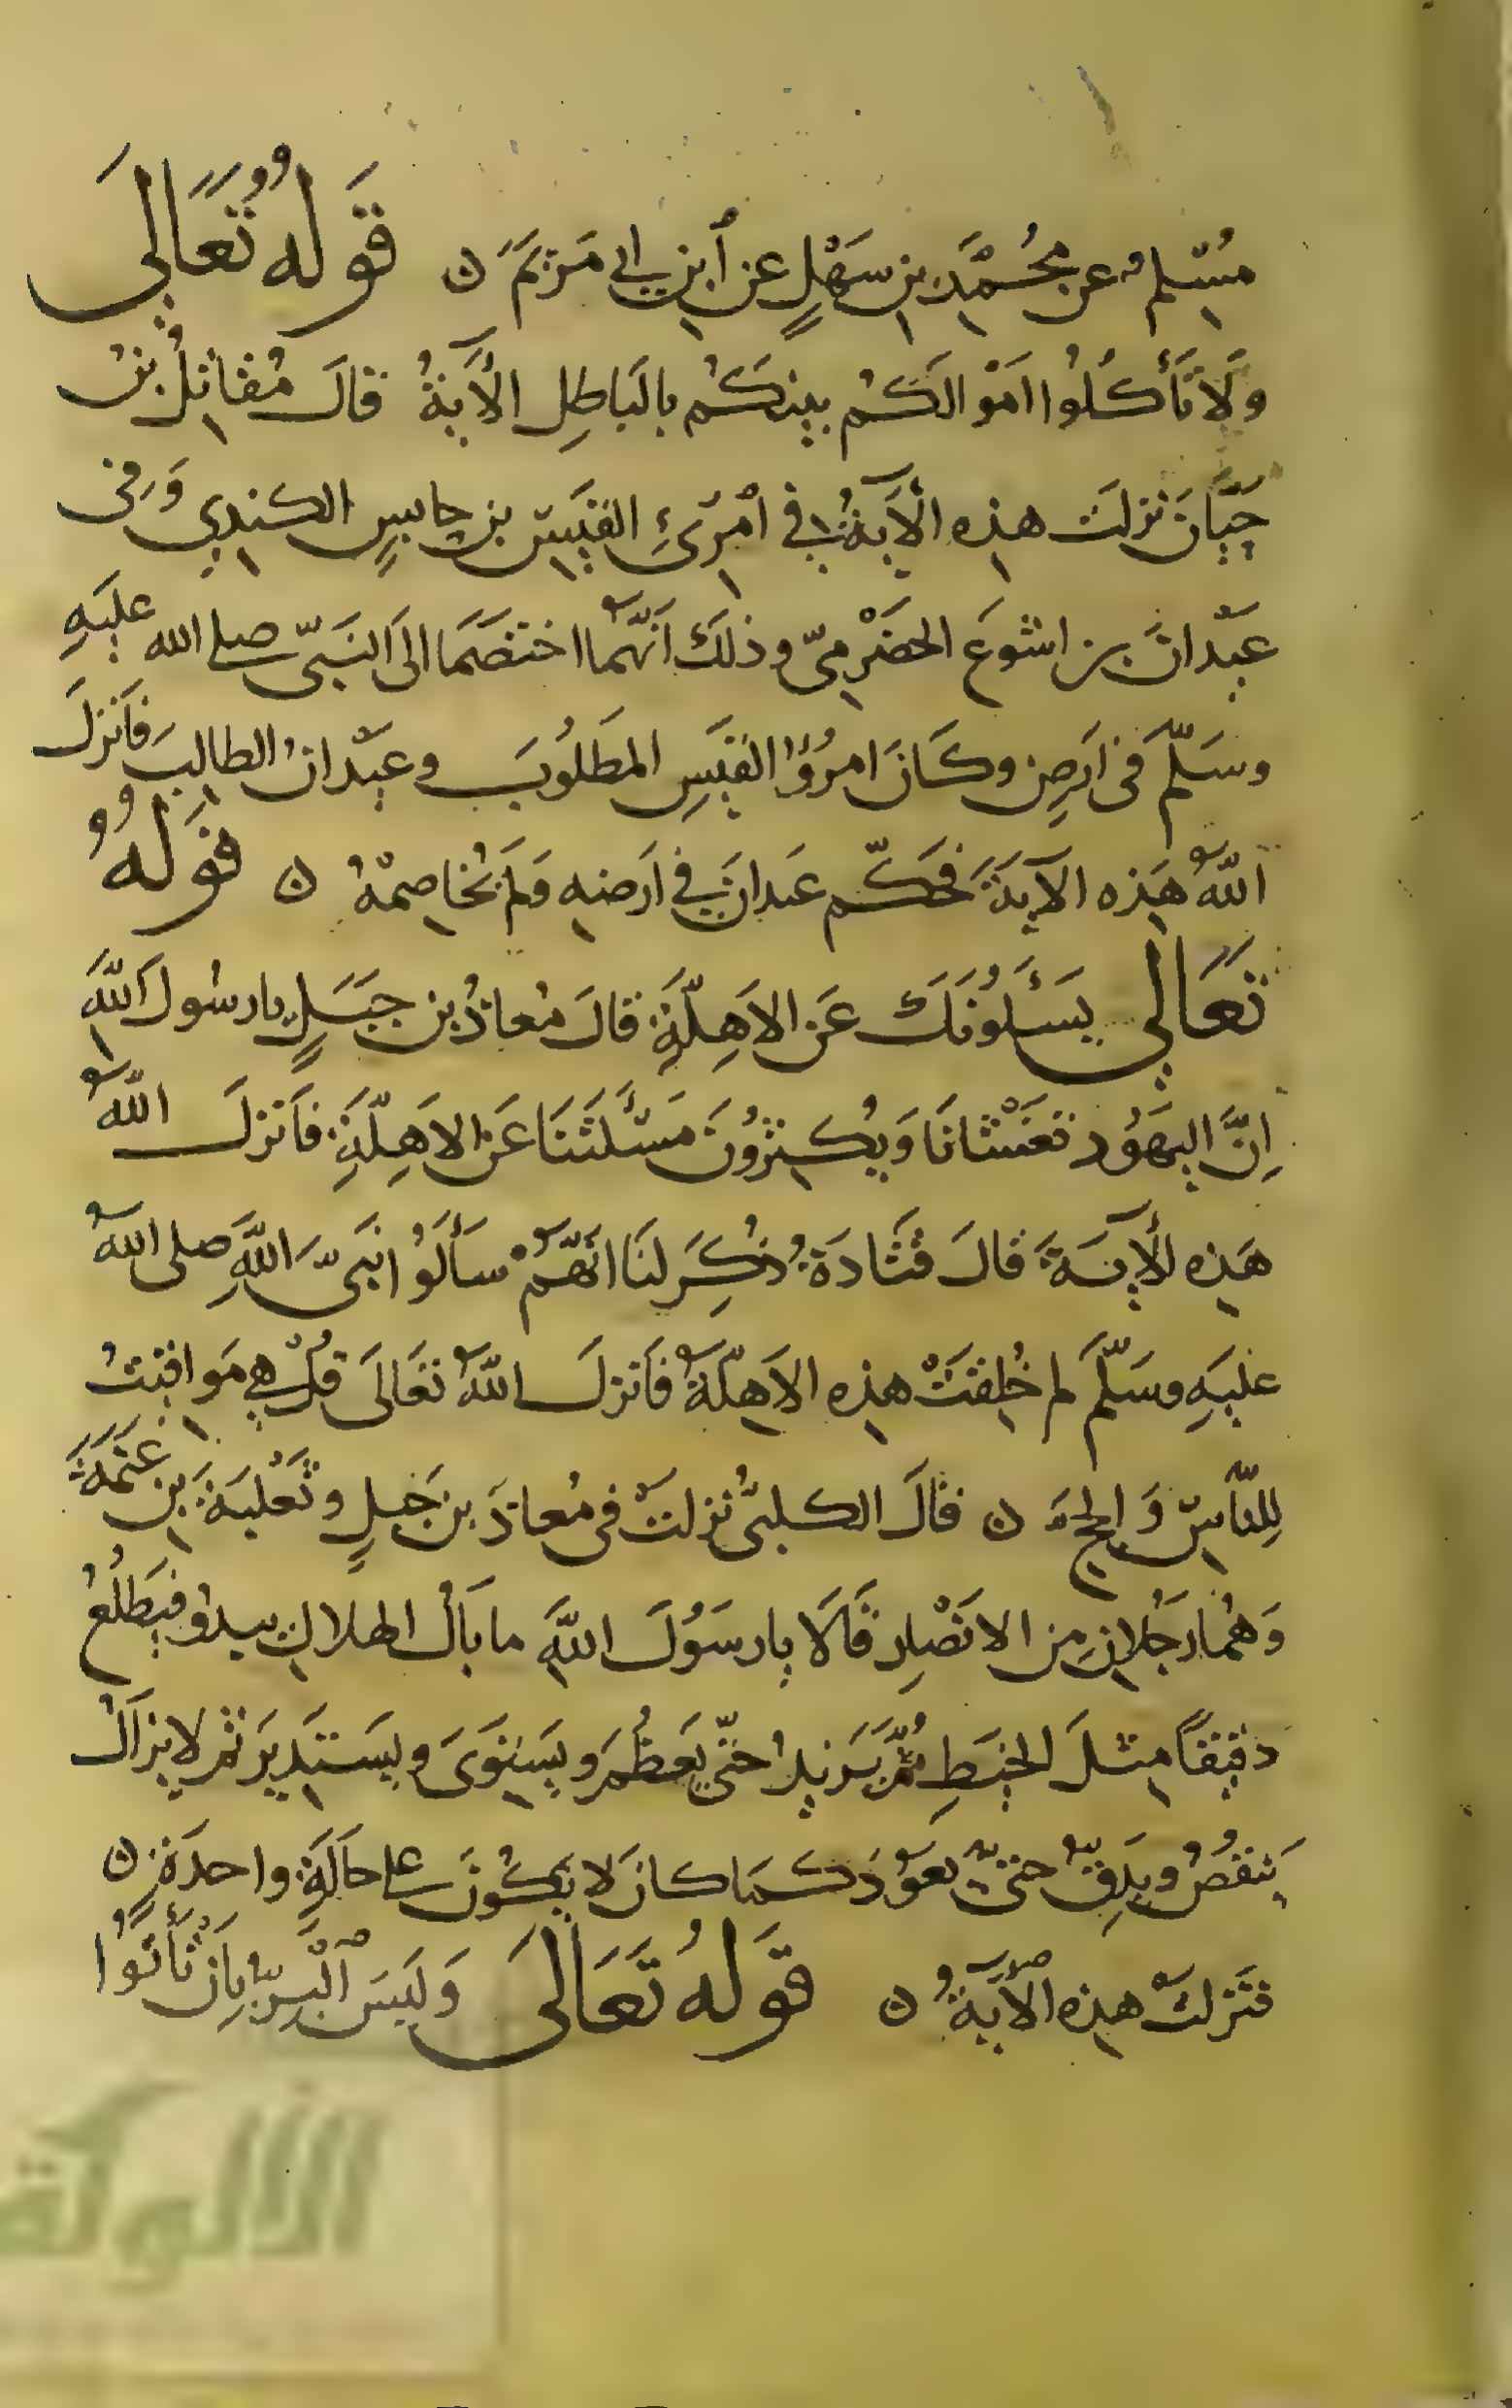 مُسْلِمٌ عن مُحَمَّدِ بنِ سَهْلٍ عن ٱبنِ ابي مَرْيَمَ ن قَولُهُ تَعَالَى
وَلَا تَأكُلُوا امْوَالَكُم بينَكُم بالبَاطِلِ الأَيَةُ قالَ مُقاتِلُ بنُ
حَيَّانَ نزلَت هذه الأَيَةُ في امْرِئِ القَيسِ بنِ عابسٍ الكندي وَفي
عَبْدانَ بن اشوَعَ الحضْرَمِيّ وذلكَ أنَّهُما اختَصَمَا الىَ النَبيّ صلى الله عليَهِ
وسَلَّمَ في ارَضٍ وكَانَ امرُؤُا القَيسِ المطَلُوبَ وعَبْدانُ الطالِبَ فَانَزلَ
اللّهُ هَذه الآيَةَ فَحَكّم عَبدانَ في ارَضه وَلم يُخاصمْهُ ن قَولُهُ
تَعَالى يَسْئَلُونَكَ عَنِ الاَهِلَّةِ قالَ مُعاذُ بن جَبَلٍ يا رسُولَ اللَّهِ
اِنَّ اليهَوُد تغَشْانَا وَيُكثرُونَ مَسْئَلَتَنَا عَنِ الاهِلّةِ فَانَزلَ اللّهُ
هَذِه الأيَةَ قالَ قتَادَةُ ذُكِرَ لنَا انَّهُمْ سَأَلُوا نَبيَّ اللَّهِ صلى اللهُ
عليَهِ وسَلّمَ لم خُلِقَتْ هذه الاَهِلّةُ فَانزلَ اللّهُ تَعَالَى قُلْ هِي مَواقيتُ
لِلنّاسِ وَالحجّ ن قالَ الكلبيُّ نزلتْ في مُعاذَ بن جَبلٍ وثَعْلبَةَ بن عَنَمَةَ
وَهُمَا رَجُلانِ مِن الانَصْارِ قَالَا يا رسَوُلَ اللَّهِ ما بَالُ الهلالِ يبدُو فيَطلُعُ
دقيقاً مِثلَ الخيَطِ ثُمَّ يَزيدُ حتّى يَعظُمَ ويَستَوىَ ويسَتَديرَ ثمَ لا يزَالُ
يَنقصُ ويَدِقّ حتىّ يعوَدَ كَمَا كانَ لا يَكُونُ على حَالَةٍ واحدَةٍ ن
فنَزلتْ هذه الاَيَةُ ن قَولُهُ تَعَالَى وَلَيسَ ٱلْبِرُّ بِاَن تَأتُوا
الألوكة